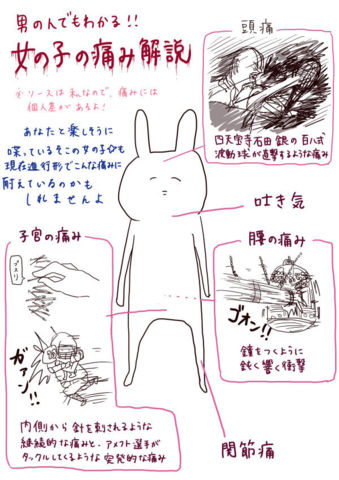 男の人でもわかる!!
女の子の痛み解説
※リースは私なので、痛みには
個人差があるよ!
あなたと楽しそうに
喋っているそこの女の子も
現在進行形でこんな痛みに
耐えているのかも
しれませんよ
頭痛
四天宝寺石田銀の百八式
波動球が直撃するような痛み
吐き気
子宮の痛み
ブスリ
ガァン!!
内側から針を刺されるような
継続的な痛みと、アメフト選手が
タックルしてくるような突発的な痛み
腰の痛み
ゴオン!!
鐘をつくように
鈍く響く衝撃
関節痛